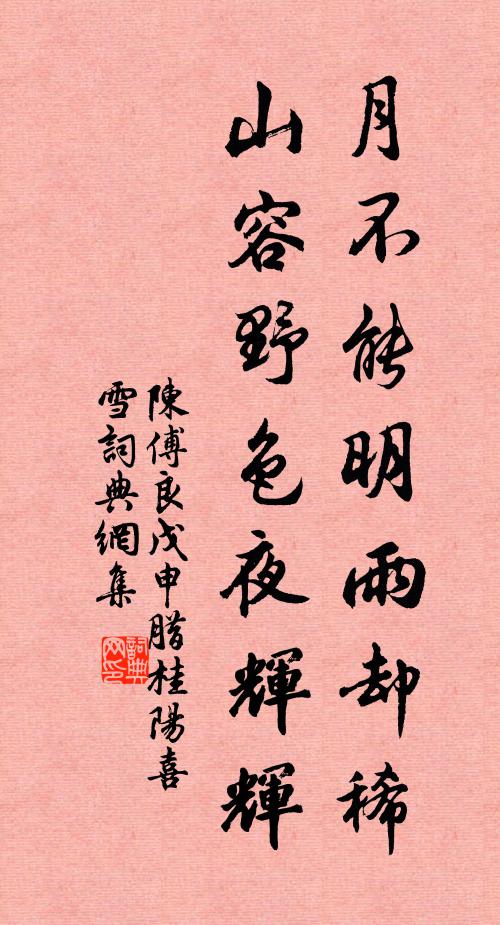 月不能明雨却稀
山容野色夜輝輝
陳傅良戊申腊桂陽喜
雪詞典網集
詞典
网印